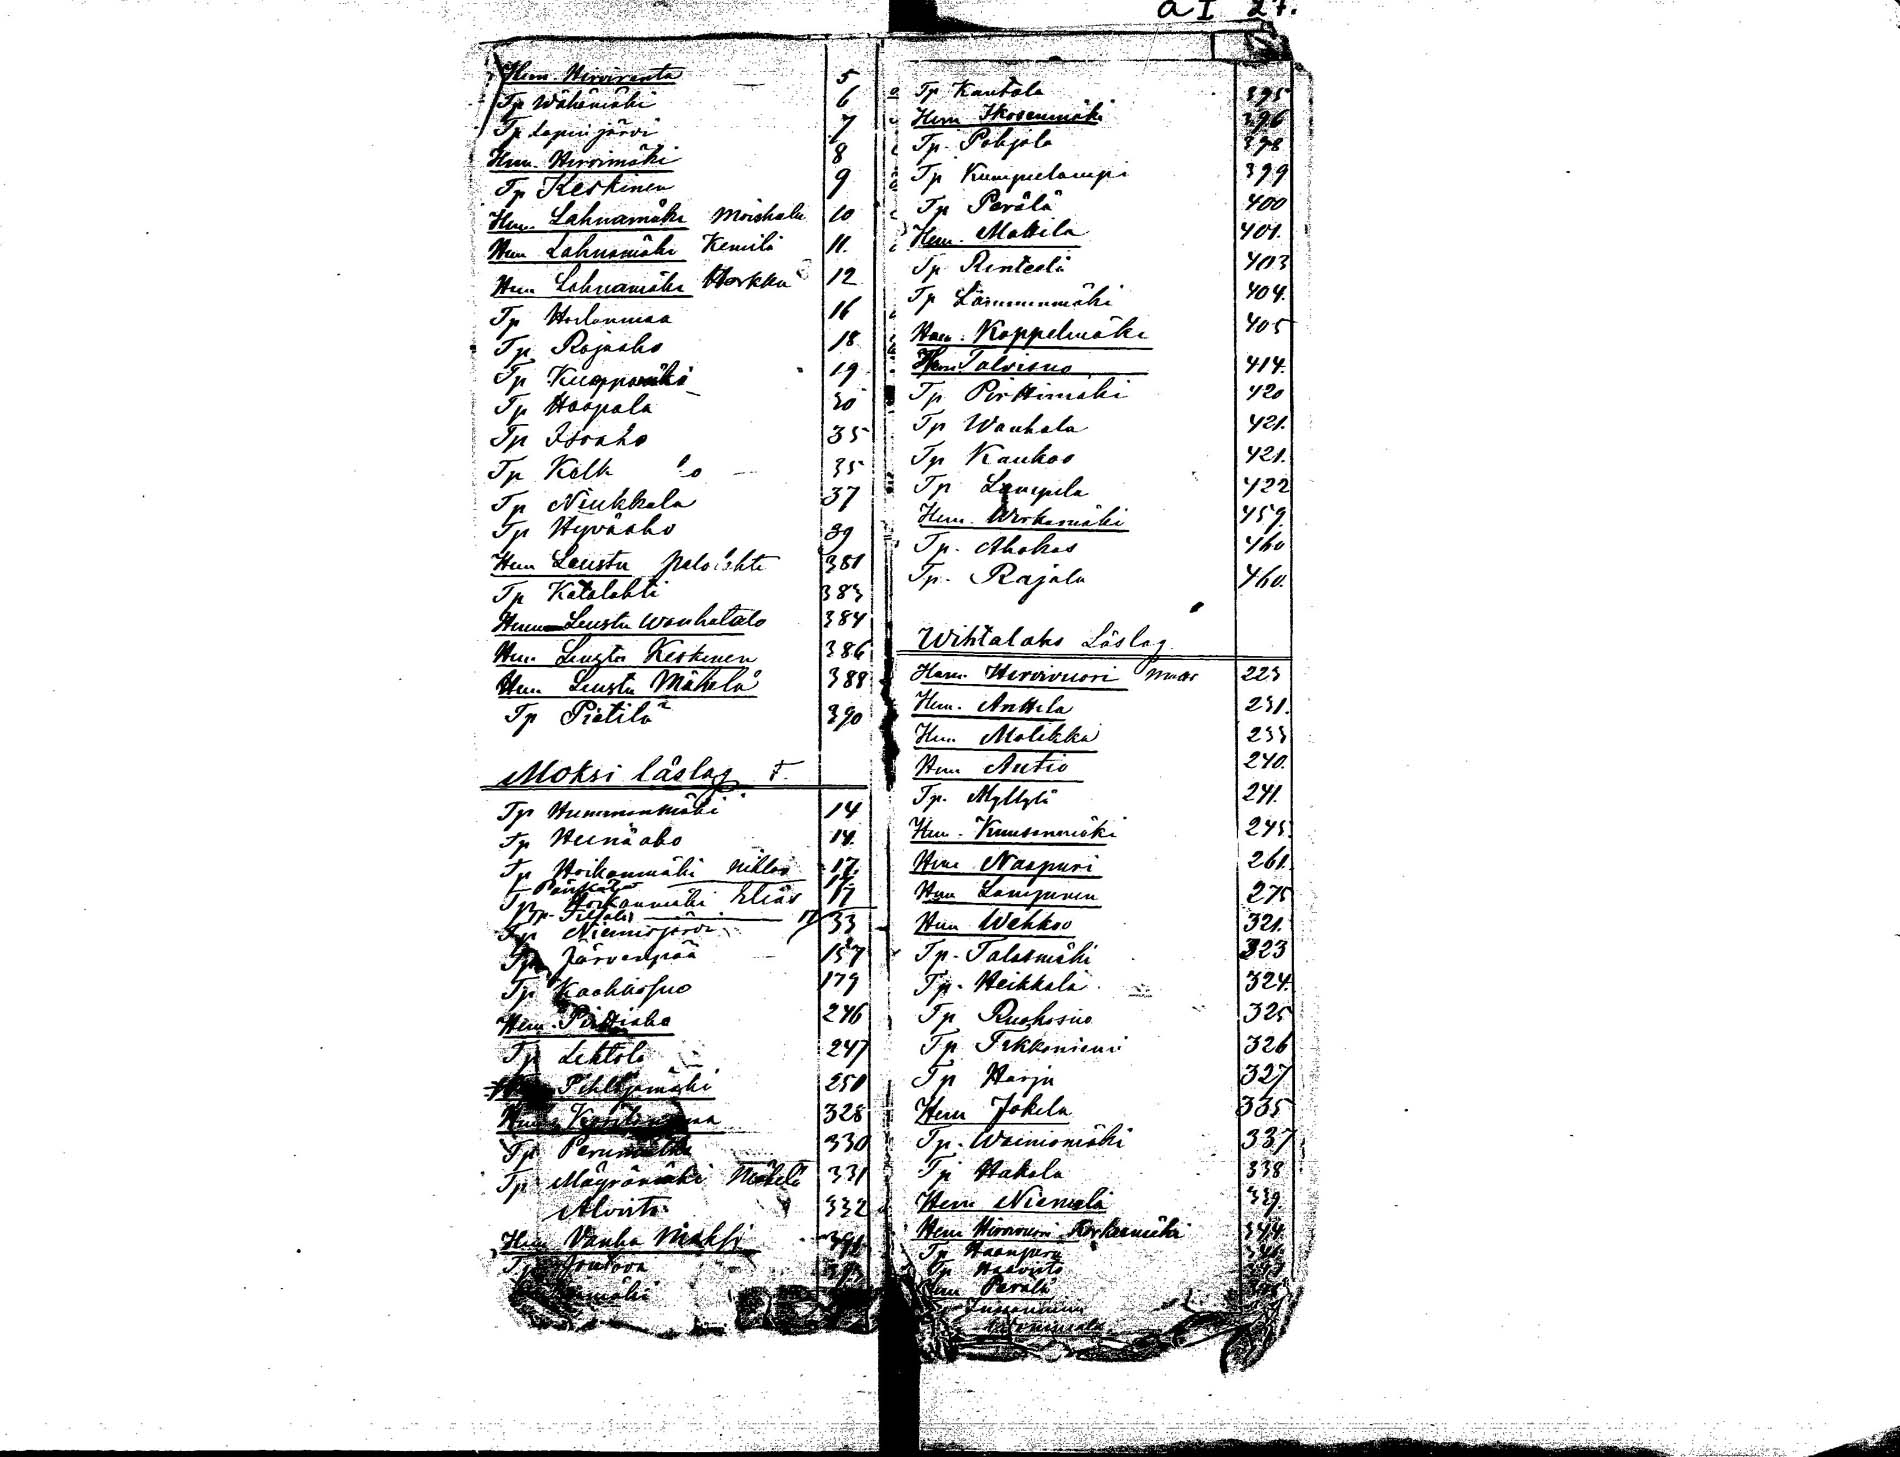 a I 27.
Hem. Hirviranta 5
Tp Wähämäki 6
Tp Lapinjärvi 7
Hem. Hirvimäki 8
Tp Keskinen 9
Hem. Lahnamäki Moiskala 10
Hem Lahnamäki Kemilä 11.
Hem Lahnamäki Herkku 12
Tp 16
Tp Rajaaho 18
Tp Kuoppamäki 19
Tp Haapala 30
Tp Isoaho 35
Tp 35
Tp Niukkala 37
Tp Hyväaho 39
Hem Leustu 381
Tp Katalahti 383
Hem Leustu Wanhatalo 384
Hem Leustu Keskinen 386
Hem Leustu Mäkelä 388
Tp Pietilä 390
Moksi läslag
Tp Hummanmäki 14
Tp Heinäaho 14.
Tp Hoikanmäki Niklas 17.
Tp Hoikanmäki Elias 17
Tp Niemisjärvi 33
Tp Järvenpää 157
Tp Kaakkosuo 179
Hem. Pirttiaho 246
Tp Lehtola 247
Pihlajamäki 250
Hem 328
Tp 330
Tp Mägrämäki Mäkelä 331
332
Hem Vanha Moksi
Tp
Tp Kantola 395
Hem Ikosenmäki 396
Tp. Pohjola 398
Tp Kumpulampi 399
Tp Perälä 400
Hem. Mattila 401.
Tp Rintelä 403
Tp Lämminmäki 404.
Hem. Koppelmäki 405
Hem Talvisuo 414.
Tp Pirttimäki 420
Tp Wanhala 421.
Tp Kaukoo 421.
Tp Lampela 422
Hem. Wirkamäki 459.
Tp. Ahokas 460
Tp. Rajala 460.
Wihtalaks Läslag
Hem. Hirvivuori 223
Hem. Anttila 231.
Hem Malikka 233
Hem Autio 240.
Tp. Myllylä 241.
Hem. Kuusanmäki 245.
Hem Naspuri 261.
Hem Lampinen 275
Hem Wehkoo 321.
Tp. Talasmäki 323
Tp. Heikkilä 324.
Tp Ruokosuo 325
Tp Pekkaniemi 326
Tp Harju 327
Hem Jokela 335
Tp. Wainiomäki 337
Tp Hakala 338
Hem Niemelä 339.
Hem Hirvivuori Korkeamäki 344
Tp Haapuro
Tp Haavisto
Hem Perälä